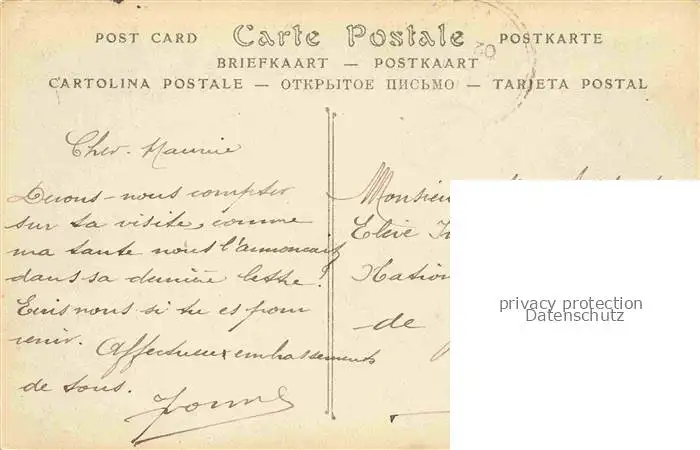 POST CARD Carte Postale POSTKARTE
BRIEFKAART — POSTKAART
CARTOLINA POSTALE — ОТКРЫТОЕ ПИСЬМО — TARJETA POSTAL
Cher Maurice
Devons-nous compter
sur ta visite, comme
ma tante nous l'annonçait
dans sa dernière lettre?
Ecris nous si tu es pour
venir. Affectueux embrassements
de tous.
Monsieur
Elève
Nation
de
privacy protection
Datenschutz